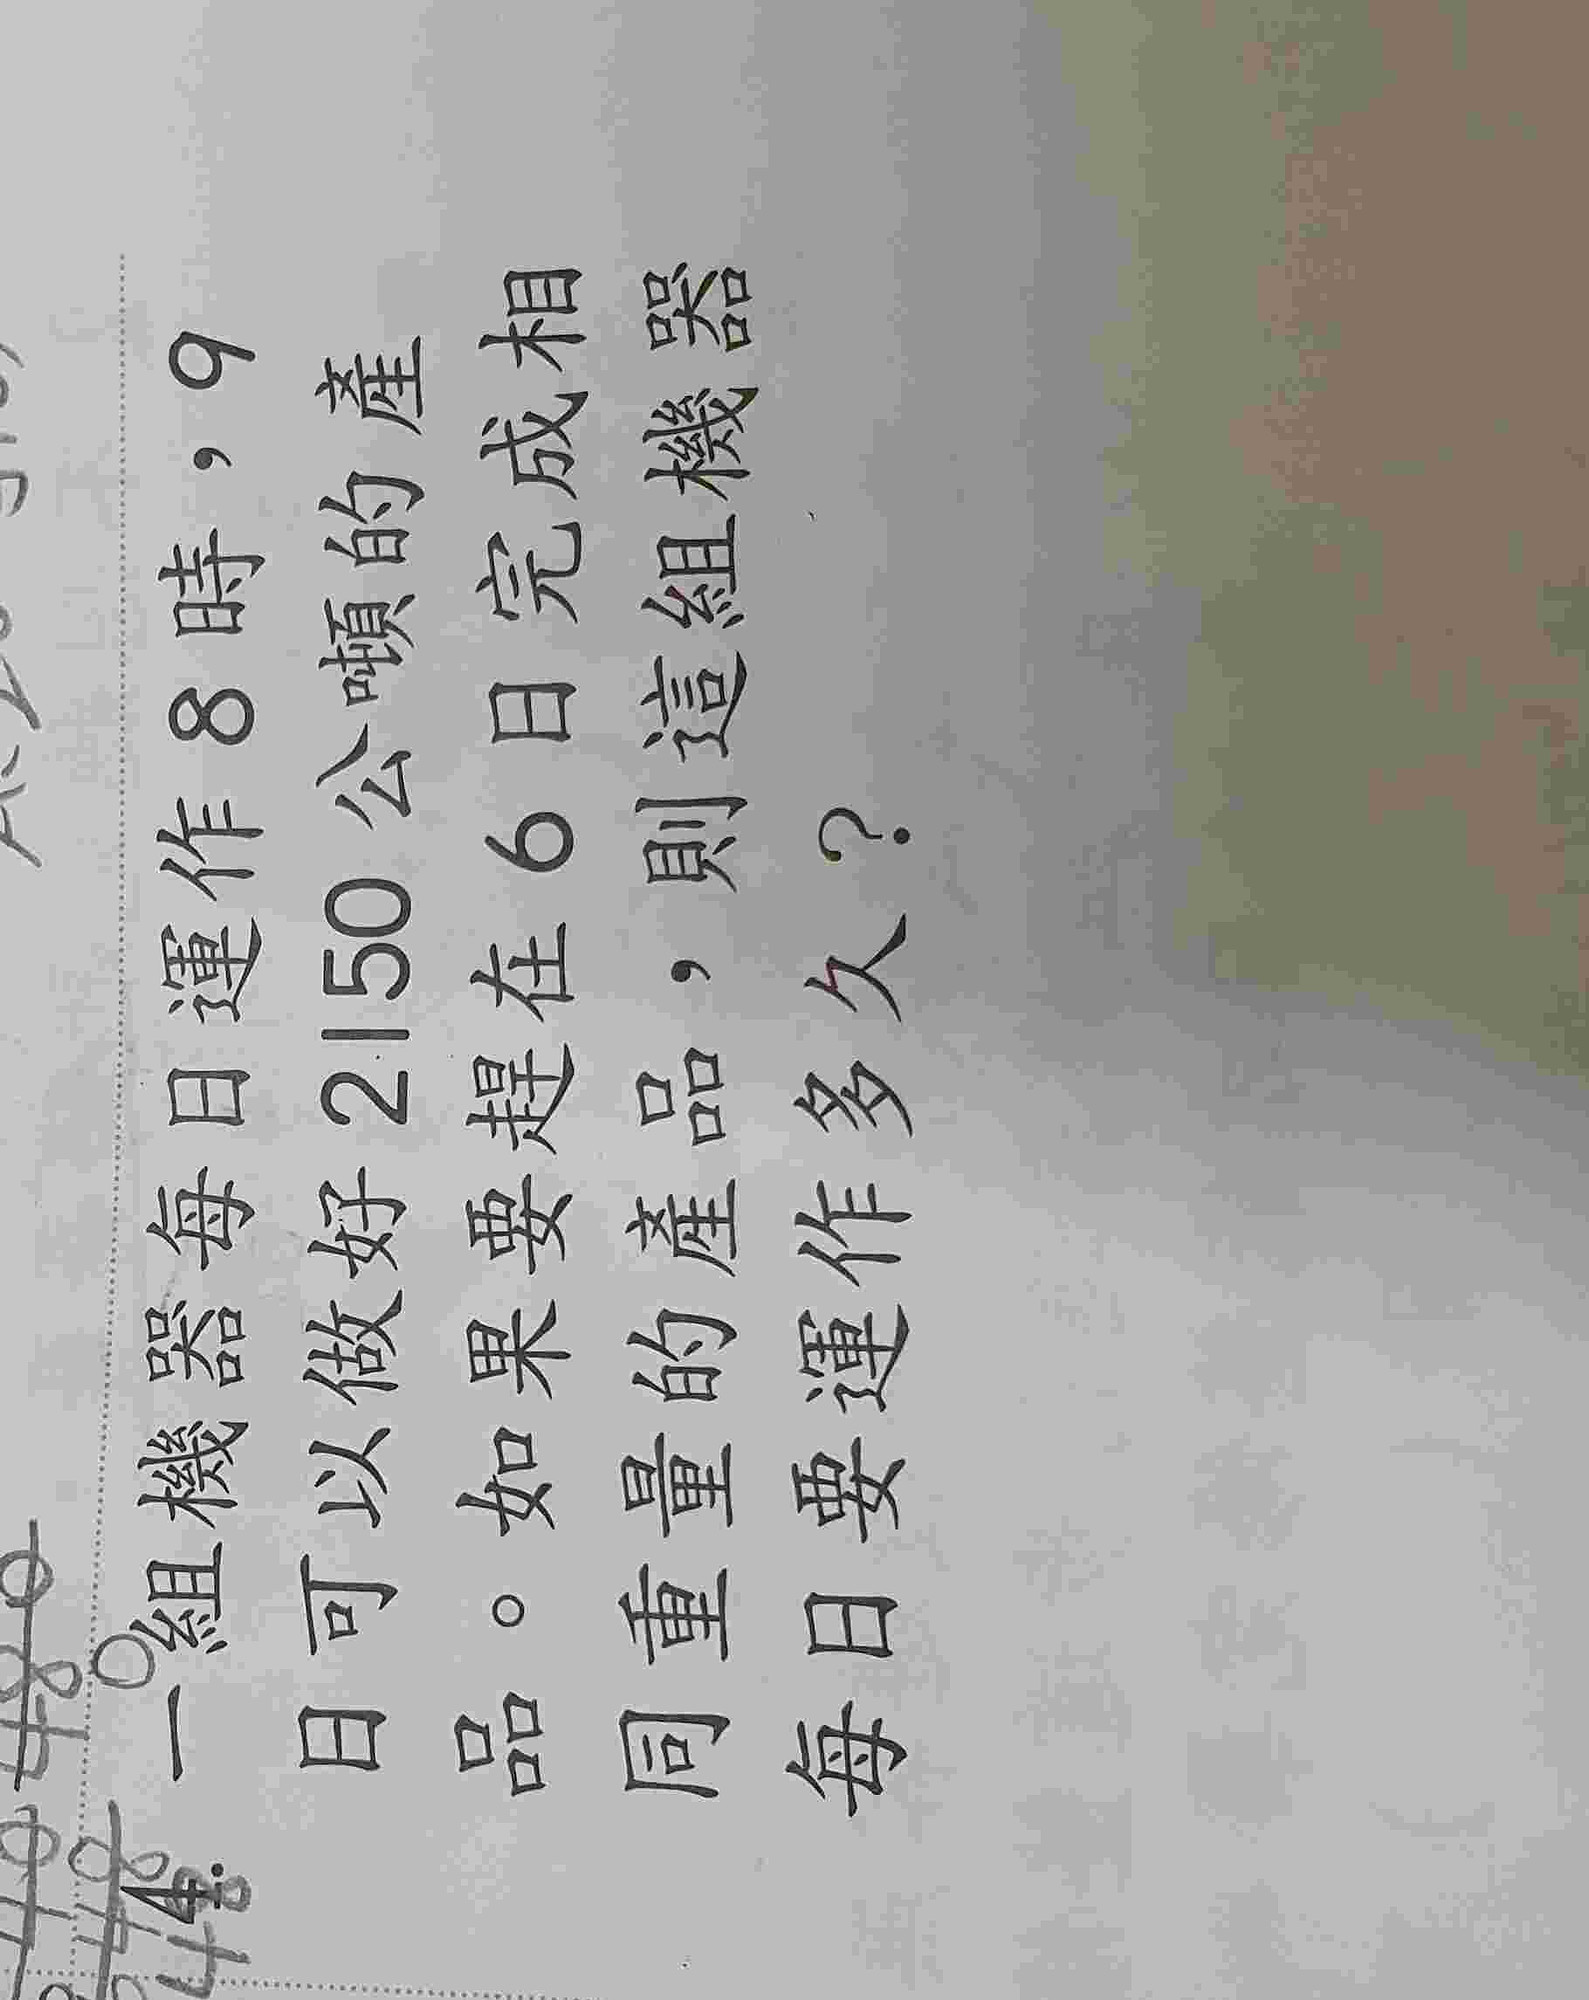 4. 一組機器每日運作8時，9
日可以做好2150公噸的產
品。如果要趕在6日完成相
同重量的產品，則這組機器
每日要運作多久？